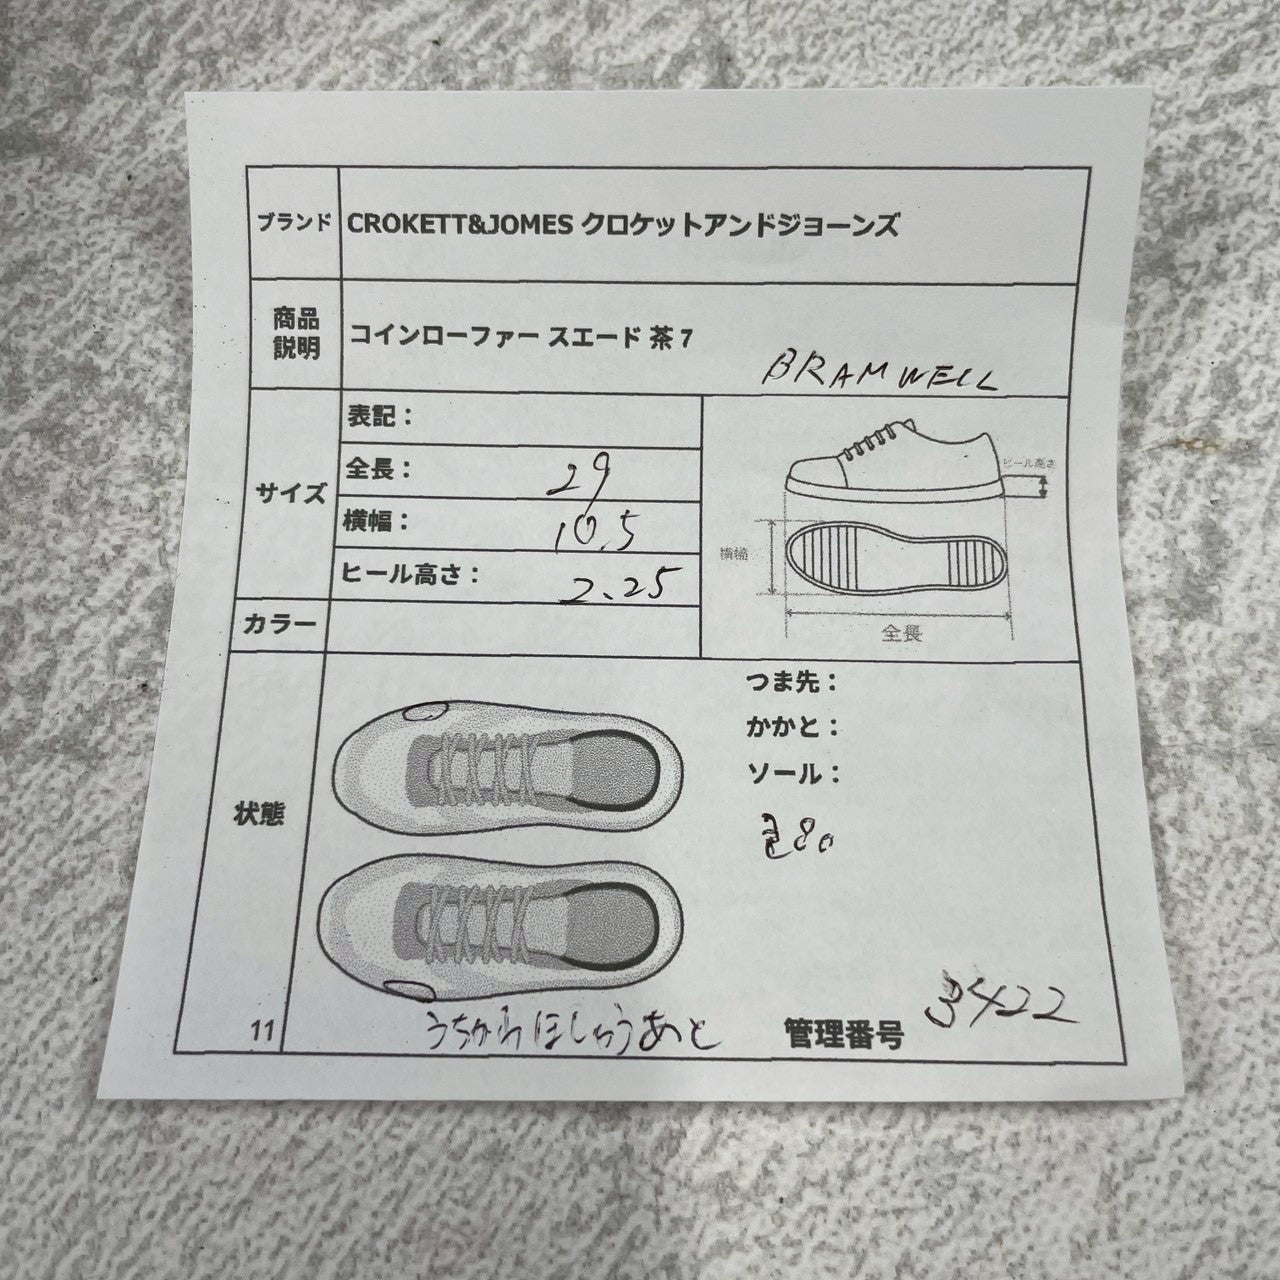 ブランド CROKETT&JOMES クロケットアンドジョーンズ
商品説明 コインローファー スエード 茶 7
BRAMWELL
サイズ
表記：
全長： 29
横幅： 10.5
ヒール高さ： 2.25
ヒール高さ
横幅
全長
カラー
状態
つま先：
かかと：
ソール：
80
うちがわほしゅうあと
11
管理番号 3422